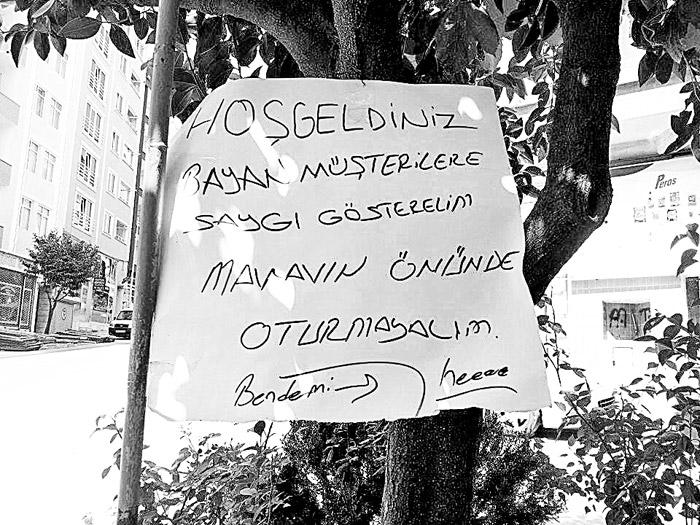 HOŞGELDİNİZ
BAYAN MÜŞTERİLERE
SAYGI GÖSTERELİM
MANAVIN ÖNÜNDE
OTURMAYALIM.
Bendemi → heeee
Peros